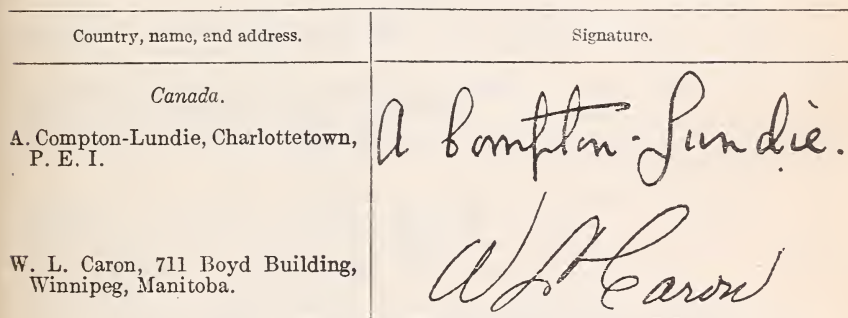 Country, name, and address. Signature.
Canada.
A. Compton-Lundie, Charlottetown, A Compton-Lundie.
P. E. I.
W. L. Caron, 711 Boyd Building, W L Caron
Winnipeg, Manitoba.